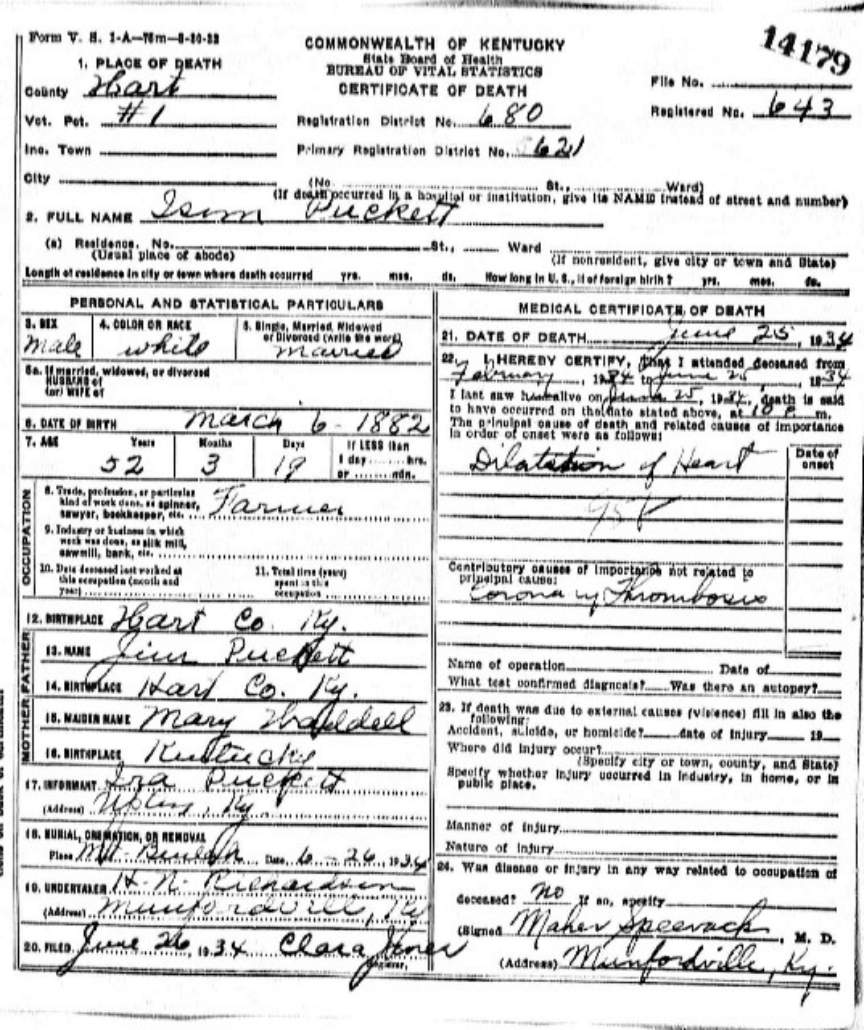 Form V. S. 1-A—75m—8-30-32
14179
COMMONWEALTH OF KENTUCKY
State Board of Health
BUREAU OF VITAL STATISTICS
CERTIFICATE OF DEATH
1. PLACE OF DEATH
County Hart
File No.
Vot. Pct. #1
Registration District No. 680
Registered No. 643
Inc. Town
Primary Registration District No. 5621
City
(No. St., Ward)
(If death occurred in a hospital or institution, give its NAME instead of street and number)
2. FULL NAME Isom Puckett
(a) Residence. No. St., Ward
(Usual place of abode) (If nonresident, give city or town and State)
Length of residence in city or town where death occurred yrs. mos. ds. How long in U. S., if of foreign birth? yrs. mos. ds.
PERSONAL AND STATISTICAL PARTICULARS
3. SEX 4. COLOR OR RACE 5. Single, Married, Widowed
or Divorced (write the word)
male white married
5a. If married, widowed, or divorced
HUSBAND of
(or) WIFE of
6. DATE OF BIRTH march 6 - 1882
7. AGE Years Months Days If LESS than
52 3 19 1 day hrs.
or min.
OCCUPATION
8. Trade, profession, or particular
kind of work done, as spinner,
sawyer, bookkeeper, etc. Farmer
9. Industry or business in which
work was done, as silk mill,
sawmill, bank, etc.
10. Date deceased last worked at
this occupation (month and
year)
11. Total time (years)
spent in this
occupation
12. BIRTHPLACE Hart Co. Ky.
FATHER
13. NAME Jim Puckett
14. BIRTHPLACE Hart Co. Ky.
MOTHER
15. MAIDEN NAME Mary Waddell
16. BIRTHPLACE Kentucky
17. INFORMANT Ira Puckett
(Address) Ky.
18. BURIAL, CREMATION, OR REMOVAL
Place Mt. Beulah Date 6-26 1934
19. UNDERTAKER H. N. Richardson
(Address) Munfordvill, Ky
20. FILED June 26 1934 Clara
Registrar.
MEDICAL CERTIFICATE OF DEATH
21. DATE OF DEATH June 25, 1934
22. I HEREBY CERTIFY, That I attended deceased from
February, 1934 to June 25, 1934
I last saw him alive on June 25, 1934, death is said
to have occurred on the date stated above, at 10 P. m.
The principal cause of death and related causes of importance
in order of onset were as follows:
Date of
onset
Dilatation of Heart
Contributory causes of importance not related to
principal cause:
Coronary Thrombosis
Name of operation Date of
What test confirmed diagnosis? Was there an autopsy?
23. If death was due to external causes (violence) fill in also the
following:
Accident, suicide, or homicide? date of injury 19
Where did injury occur?
(Specify city or town, county, and State)
Specify whether injury occurred in industry, in home, or in
public place.
Manner of injury
Nature of injury
24. Was disease or injury in any way related to occupation of
deceased? no If so, specify
(Signed Maher Speevack, M. D.
(Address) Munfordville, Ky.